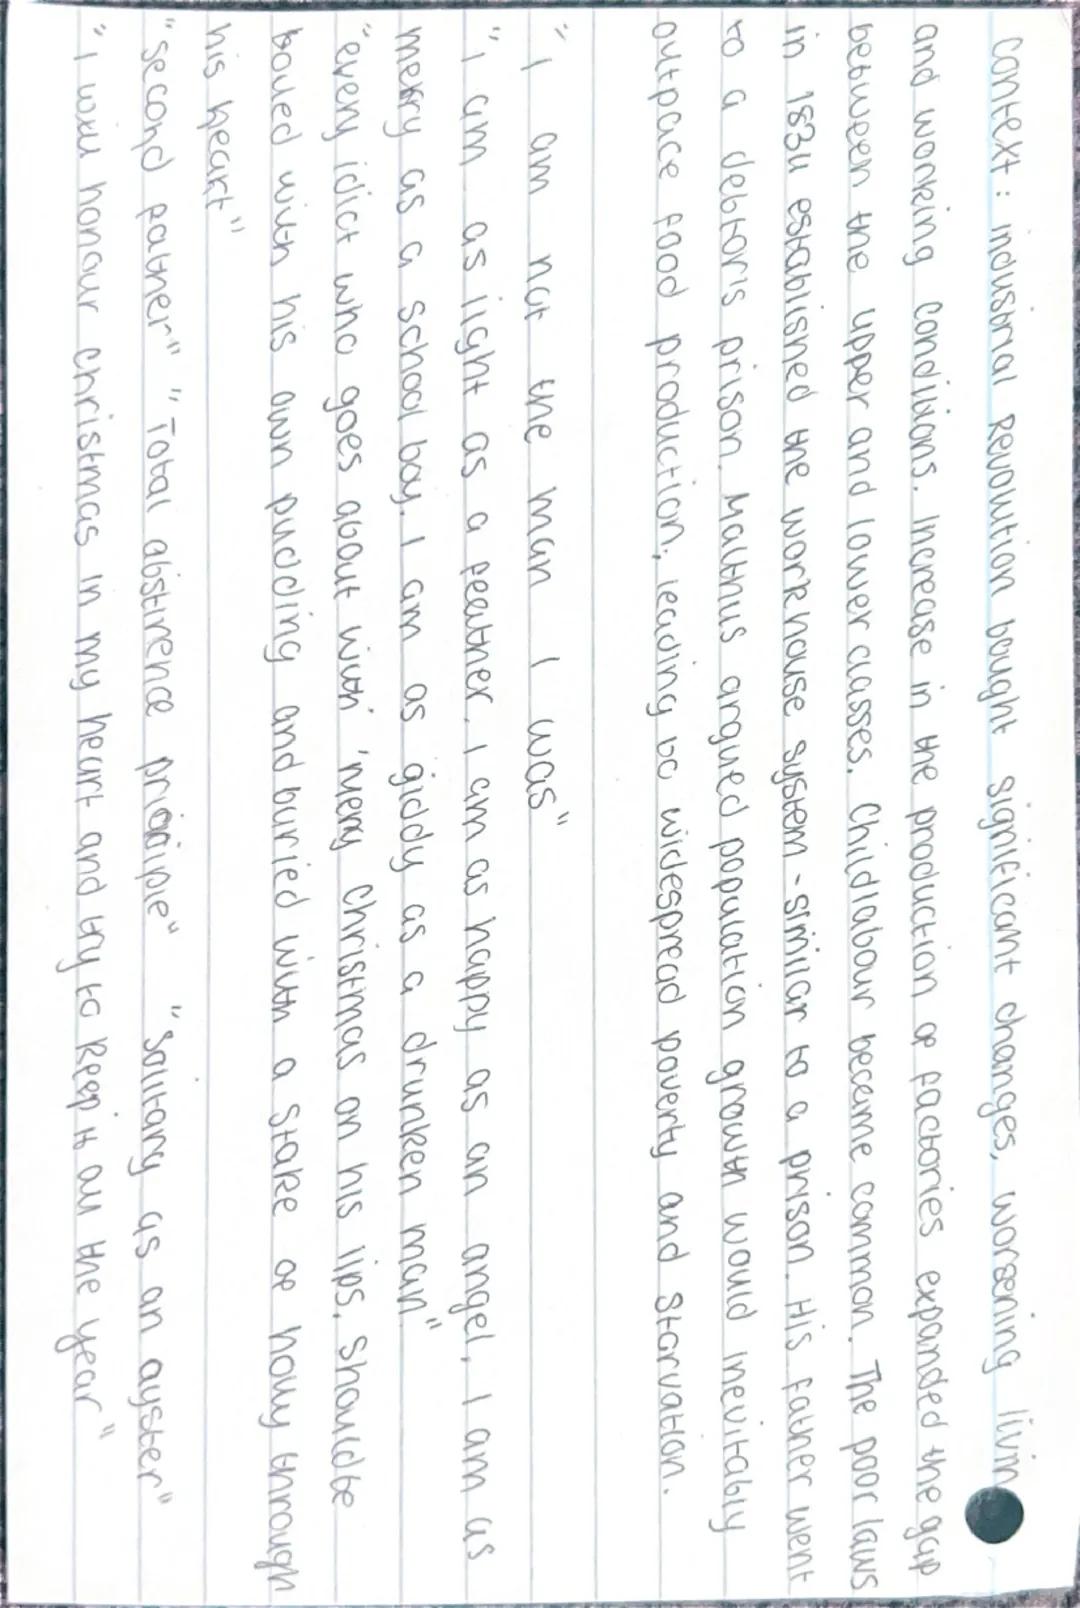 Context: industrial Revolution bought significant changes, worsening livin
and working conditions. Increase in the production of factories expanded the gap
between the upper and lower classes. Child labour became common. The poor laws
in 1834 established the workhouse system - similar to a prison. His father went
to a debtor's prison. Malthus argued population growth would inevitably
outpace food production, leading to widespread poverty and starvation.
"I am not the man I was"
"I am as light as a feather, I am as happy as an angel, I am as
merry as a school boy. I am as giddy as a drunken man."
"every idict who goes about with 'merry Christmas on his lips, should be
boiled with his own pudding and buried with a stake of holly through
his heart"
"second father" "Total abstinence principle" "Solitary as an oyster"
"I will honour christmas in my heart and try to keep it all the year"